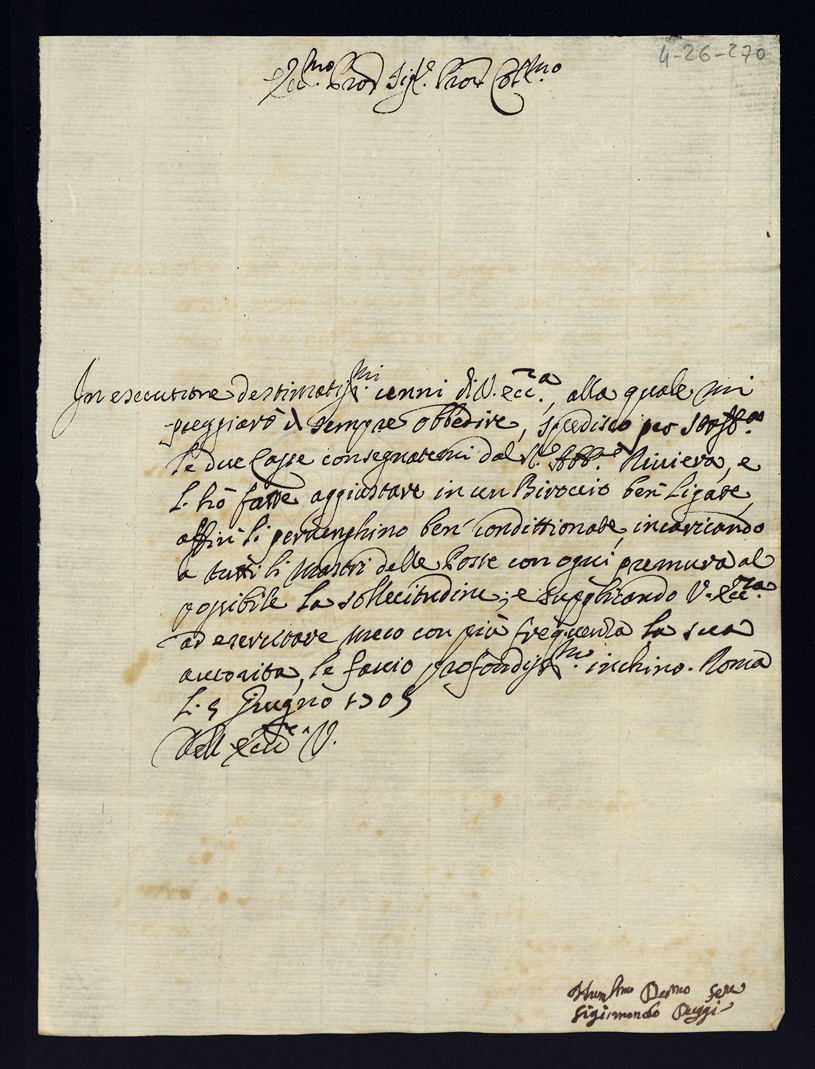 4-26-270
Ecc.mo Prōe Sig.r Prōn Coll.mo
In esecutione de stimatiss.mi cenni di V. Ecc.za, alla quale mi
preggiarò di sempre obbedire, spedisco per
le due Casse consegnatemi dal S.r Abb.e Riviera, e
l'hò fatte aggiustare in un Biroccio ben ligate,
affin li pervenghino ben condittionate, incaricando
a tutti li Mastri delle Poste con ogni premura al
possibile la sollecitudine; e supplicando V. Ecc.za
ad esercitare meco con più frequenza la sua
autorita, le faccio profondiss.mo inchino. Roma
L. 5 Giugno 1705
Dell'Ecc.za V.
Hum.mo Devmo Ser.e
Sigismondo